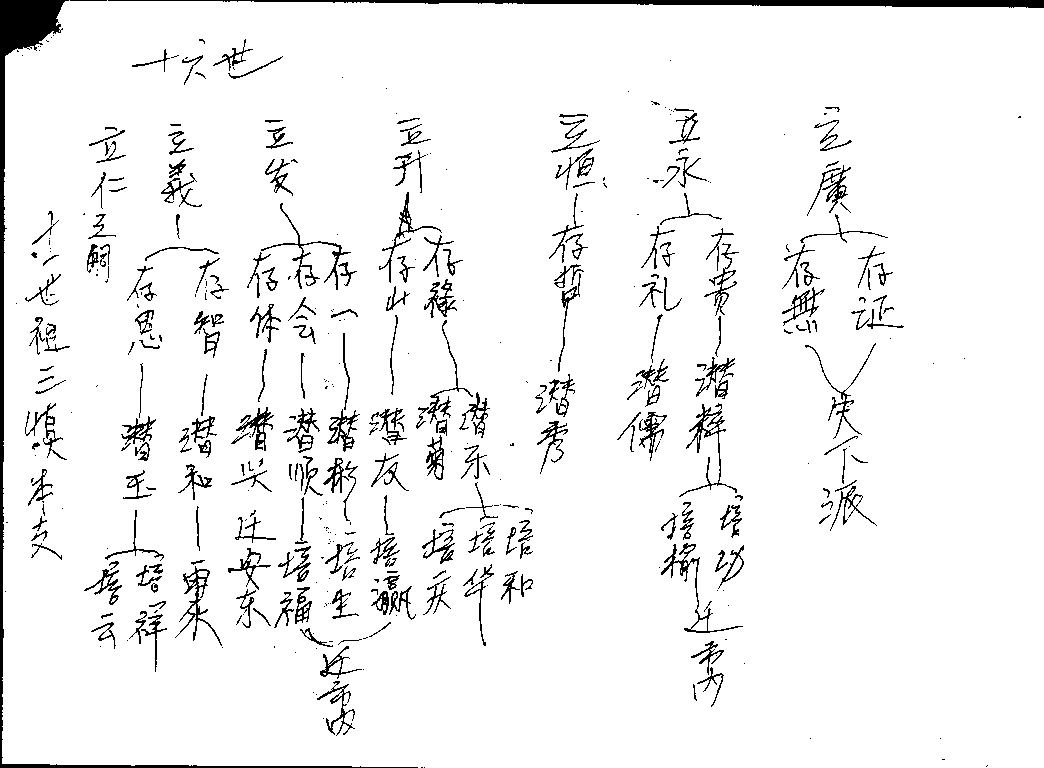 十六世
立廣
存证
存無
下派
立永
存贵
存礼
潜祥
潜儒
培功
培榆
迁市内
立恒
存哲
潜秀
立升
存禄
存山
潜乐
潜菊
潜友
培和
培华
培庆
培瀛
立发
存一
存会
存体
潜彬
潜顺
潜兴
培生
培福
迁安东
迁市内
立義
存智
存恩
潜和
潜玉
培祥
培云
立仁 乏嗣
十一世祖三慎本支